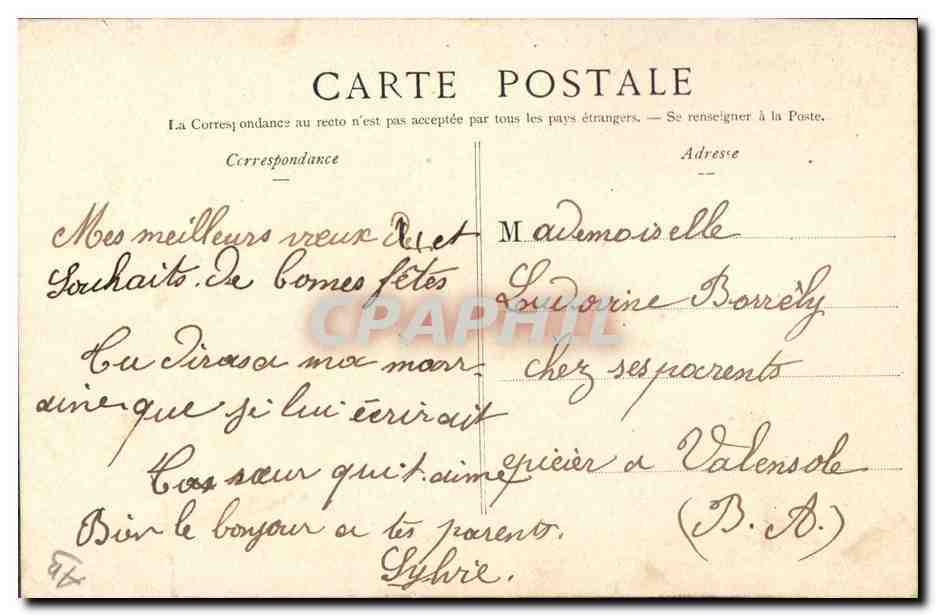 CARTE POSTALE
La Correspondance au recto n'est pas acceptée par tous les pays étrangers. — Se renseigner à la Poste.
Correspondance
Mes meilleurs vœux et
Souhaits. de bonnes fêtes
Tu diras a ma marr-
aine que je lui écrirait
Ta sœur qui t. aime
Bien le bonjour a tes parents.
Sylvie.
Adresse
Mademoiselle
Ludovine Borrély
chez ses parents
epicier a Valensole
(B. A.)
CPAPHIL